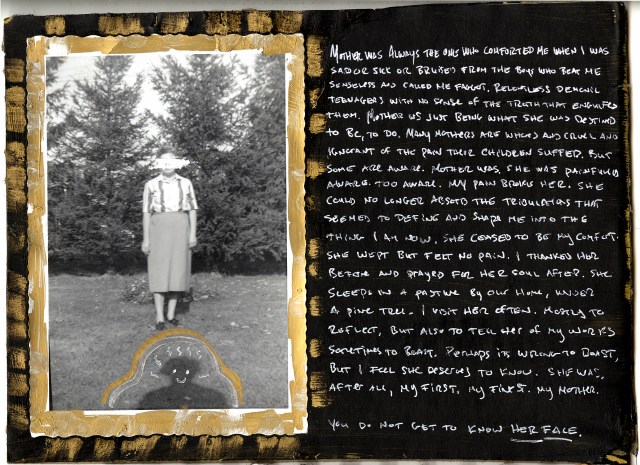 MOTHER WAS ALWAYS THE ONE WHO COMFORTED ME WHEN I WAS
SAD OR SICK OR BRUISED FROM THE BOYS WHO BEAT ME
SENSELESS AND CALLED ME FAGGOT. RELENTLESS DEMONIC
TEENAGERS WITH NO SENSE OF THE TRUTH THAT ENGULFED
THEM. MOTHER WAS JUST BEING WHAT SHE WAS DESTINED
TO BE, TO DO. MANY MOTHERS ARE WICKED AND CRUEL AND
IGNORANT OF THE PAIN THEIR CHILDREN SUFFER. BUT
SOME ARE AWARE. MOTHER WAS. SHE WAS PAINFULLY
AWARE. TOO AWARE. MY PAIN BROKE HER. SHE
COULD NO LONGER ABSORB THE TRIBULATIONS THAT
SEEMED TO DEFINE AND SHAPE ME INTO THE
THING I AM NOW. SHE CEASED TO BE MY COMFORT.
SHE WEPT BUT FELT NO PAIN. I THANKED HER
BEFORE AND PRAYED FOR HER SOUL AFTER. SHE
SLEEPS IN A PASTURE BY OUR HOME, UNDER
A PINE TREE. I VISIT HER OFTEN. MOSTLY TO
REFLECT, BUT ALSO TO TELL HER OF MY WORKS
SOMETIMES TO BOAST. PERHAPS ITS WRONG TO BOAST,
BUT I FEEL SHE DESERVES TO KNOW. SHE WAS,
AFTER ALL, MY FIRST. MY FINEST. MY MOTHER.
YOU DO NOT GET TO KNOW HER FACE.